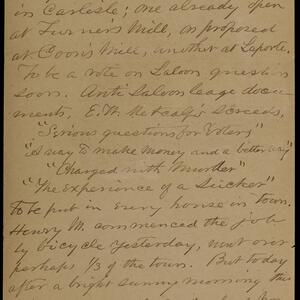 in Carlisle; one already open
at Turner's Mill, on proposed
at Coon's Mill, another at Laporte.
To be a vote on Saloon question
soon. Anti Saloon leage doc-
ments, E. W. Metcalf's Screeds,
"Serious questions for Voters"
"A way to make Money and a better way"
"Charged with Murder"
"The Experience of a Sucker"
to be put in every house in town.
Henry M. commenced the job
by bicycle yesterday, went over
perhaps 1/3 of the town. But today
after a bright sunny morning the